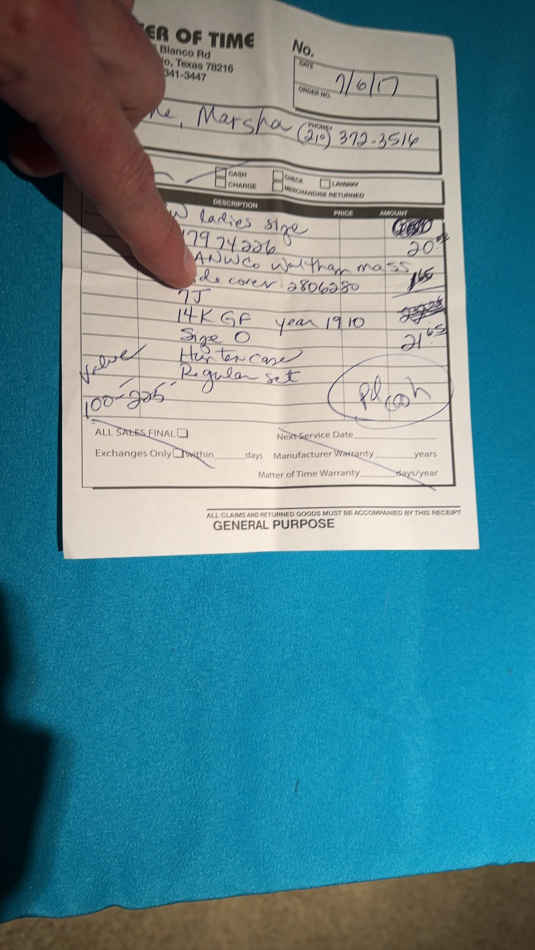 ER OF TIME
Blanco Rd
o, Texas 78216
341-3447
No.
DATE
7/6/17
ORDER NO.
Marsha
PHONE
(210) 372-3516
CASH
CHARGE
CHECK
MERCHANDISE RETURNED
LAYAWAY
DESCRIPTION PRICE AMOUNT
W ladies size
17974226 20
ANWCo Waltham mass
cover 2806280 165
7J
14K GF year 1910
Size 0 21 65
Hunter case
Regular set
Value
100-225
Pd cash
ALL SALES FINAL
Next Service Date
Exchanges Only within days Manufacturer Warranty years
Matter of Time Warranty days/year
ALL CLAIMS AND RETURNED GOODS MUST BE ACCOMPANIED BY THIS RECEIPT
GENERAL PURPOSE